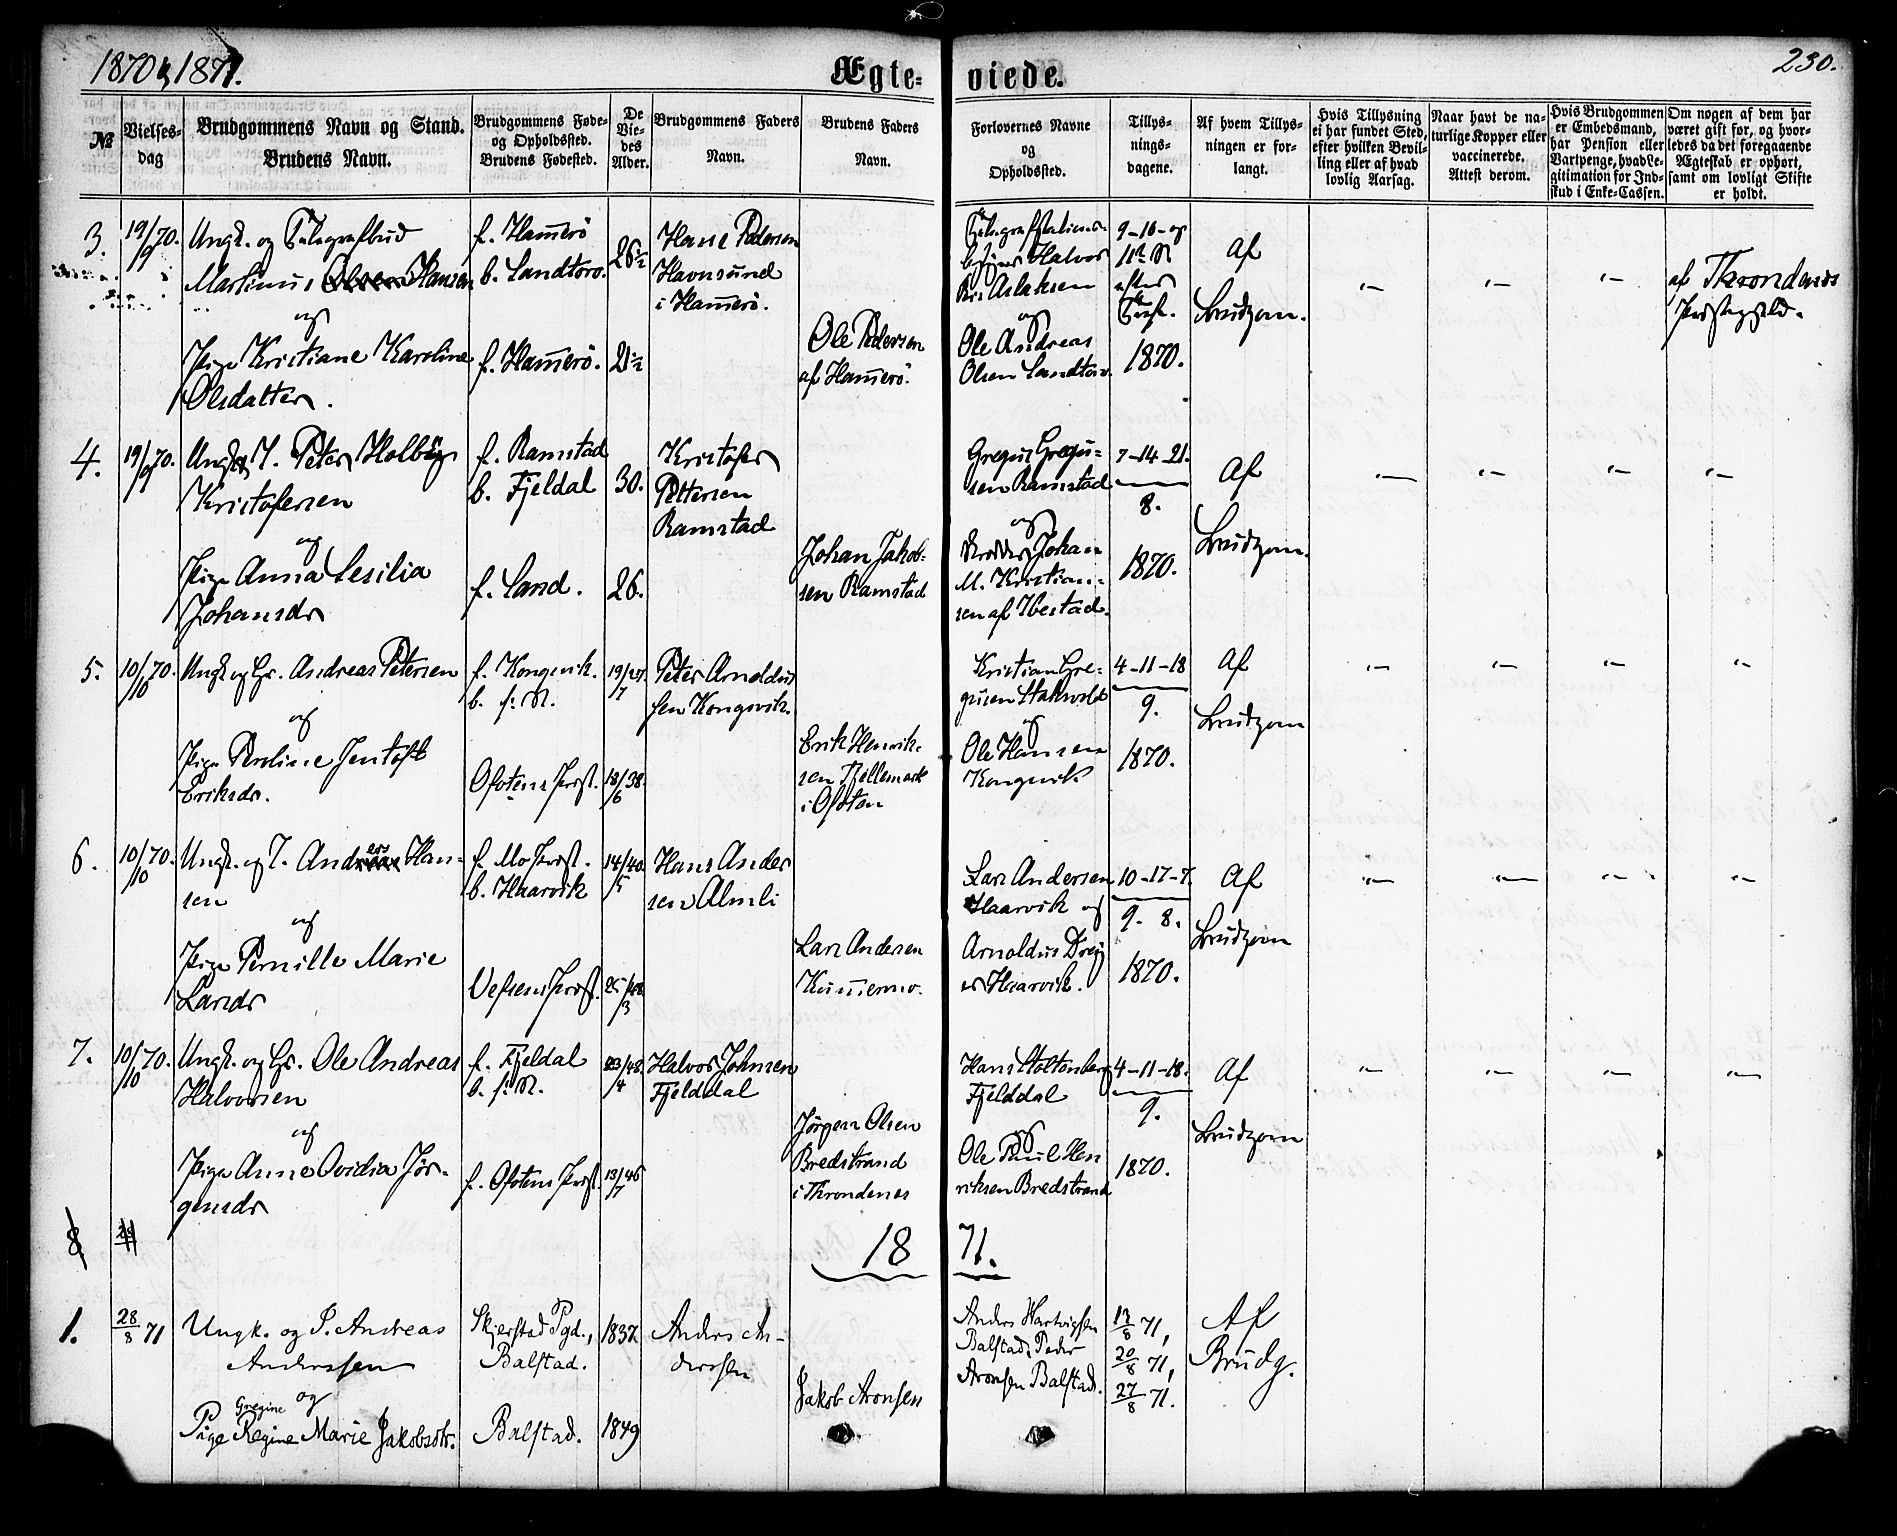 1870 & 1871.
Ægte-
viede.
230.
№
Vielses-
dag
Brudgommens Navn og Stand.
Brudens Navn.
Brudgommens Føde-
og Opholdssted.
Brudens Fødested.
De
Vie-
des
Alder.
Brudgommens Faders
Navn.
Brudens Faders
Navn.
Forlovernes Navne
og
Opholdssted.
Tillys-
nings-
dagene.
Af hvem Tillys-
ningen er for-
langt.
Hvis Tillysning
ei har fundet Sted,
efter hvilken Bevil-
ling eller af hvad
lovlig Aarsag.
Naar havt de na-
turlige Kopper eller
vaccinerede.
Attest derom.
Hvis Brudgommen
er Embedsmand,
har Pension eller
Vartpenge, hvad Le-
gitimation for Ind-
skud i Enke-Cassen.
Om nogen af dem har
været gift før, og hvor-
ledes da det foregaaende
Ægteskab er ophørt,
samt om lovligt Skifte
er holdt.
3.
19/9 70.
Ungk. og Telegrafbud
Martinus Olsen Hansen
og
Pige Kristiane Karoline
Olsdatter.
f. Hamerö
b. Sandtorv.
f. Hamerö.
26½
21½
Hans Pedersen
Havnsund
i Hamerö.
Ole Pedersen
af Hamerö.
Halvor
Aslaksen
og
Ole Andreas
Olsen Sandtorv.
9-16-og
11te S.
efter
Tref.
1870.
Af
Brudgom.
af Throndenes
Præstegjeld.
4.
19/9 70.
Ungk. og I. Peter Holberg
Kristofersen
og
Pige Anna Sesilia
Johansdr
f. Ramstad
b. Fjeldal
f. Sand.
30.
26.
Kristofer
Pettersen
Ramstad
Johan Jakob-
sen Ramstad
Gregus Gregu-
sen Ramstad
og
Johan
M. Kristian-
sen af Ibestad.
7-14-21.
8.
1870.
Af
Brudgom.
5.
10/10 70.
Ungk og Gr. Andreas Petersen
og
Pige Pauline Jentoft
Eriksdr.
f. Kongsvik.
b. s: St.
Ofotens Præst.
19/7 47.
18/6 38.
Peter Arnoldus
sen Kongsvik.
Erik Henrik-
sen Fjellemark
i Ofoten
Kristian Gre-
gusen Stakvold
og
Ole Hansen
Kongsvik
4-11-18
9.
1870.
Af
Brudgom
6.
10/10 70.
Ungk. og I. Anders Han-
sen
og
Pige Pernille Marie
Larsdr
f. Mo Præst.
b. Haarvik
Vefsens Præst.
14/5 40.
25/3 48
Hans Ander
sen Almli
Lars Andersen
Kummermo.
Lars Andersen
Haarvik og
Arnoldus Drey
er Haarvik.
10-17-7.
9. 8.
1870.
Af
Brudgom
7.
10/10 70.
Ungk. og Gr. Ole Andreas
Halvorsen
og
Pige Anne Ovidia Jör-
gensdr
f. Fjeldal
b. s: St.
f. Ofotens Præst.
23/4 48.
13/7 46
Halvor Johnsen
Fjelddal
Jörgen Olsen
Bredstrand
i Throndenes
Hans Stoltenberg
Fjelddal
og
Ole Paul Hen
riksen Bredstrand
4-11-18.
9.
1870.
Af
Brudgom
8.
18 71.
1.
28/8 71
Ungk. og I. Andreas
Anderssen
og
Gregine
Pige Regine Marie Jakobsdtr.
Skjerstad Pgd.,
Balstad.
Balstad.
1837
1849
Anders An-
derssen
Jakob Aronsen
Anders Hartvigsen
Balstad, Peder
Aronsen Balstad.
13/8 71,
20/8 71,
27/8 71.
Af
Brudg.